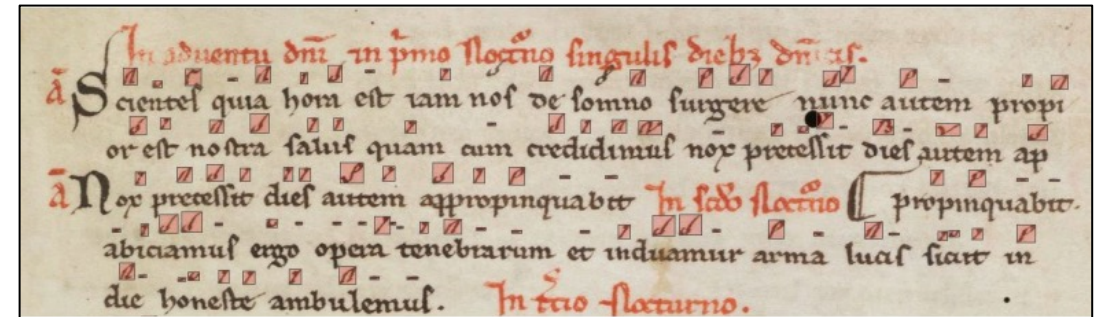 In aduentu dn̄i in p̄mo Noct̄no singulis dieb; dn̄icis.
ā Scientes quia hora est iam nos de somno surgere nunc autem propi
or est nostra salus quam cum credidimus nox precessit dies autem ap
ā Nox precessit dies autem appropinquabit In sc̄do Noct̄no propinquabit.
abiciamus ergo opera tenebrarum et induamur arma lucis sicut in
die honeste ambulemus. In t̄cio Nocturno.